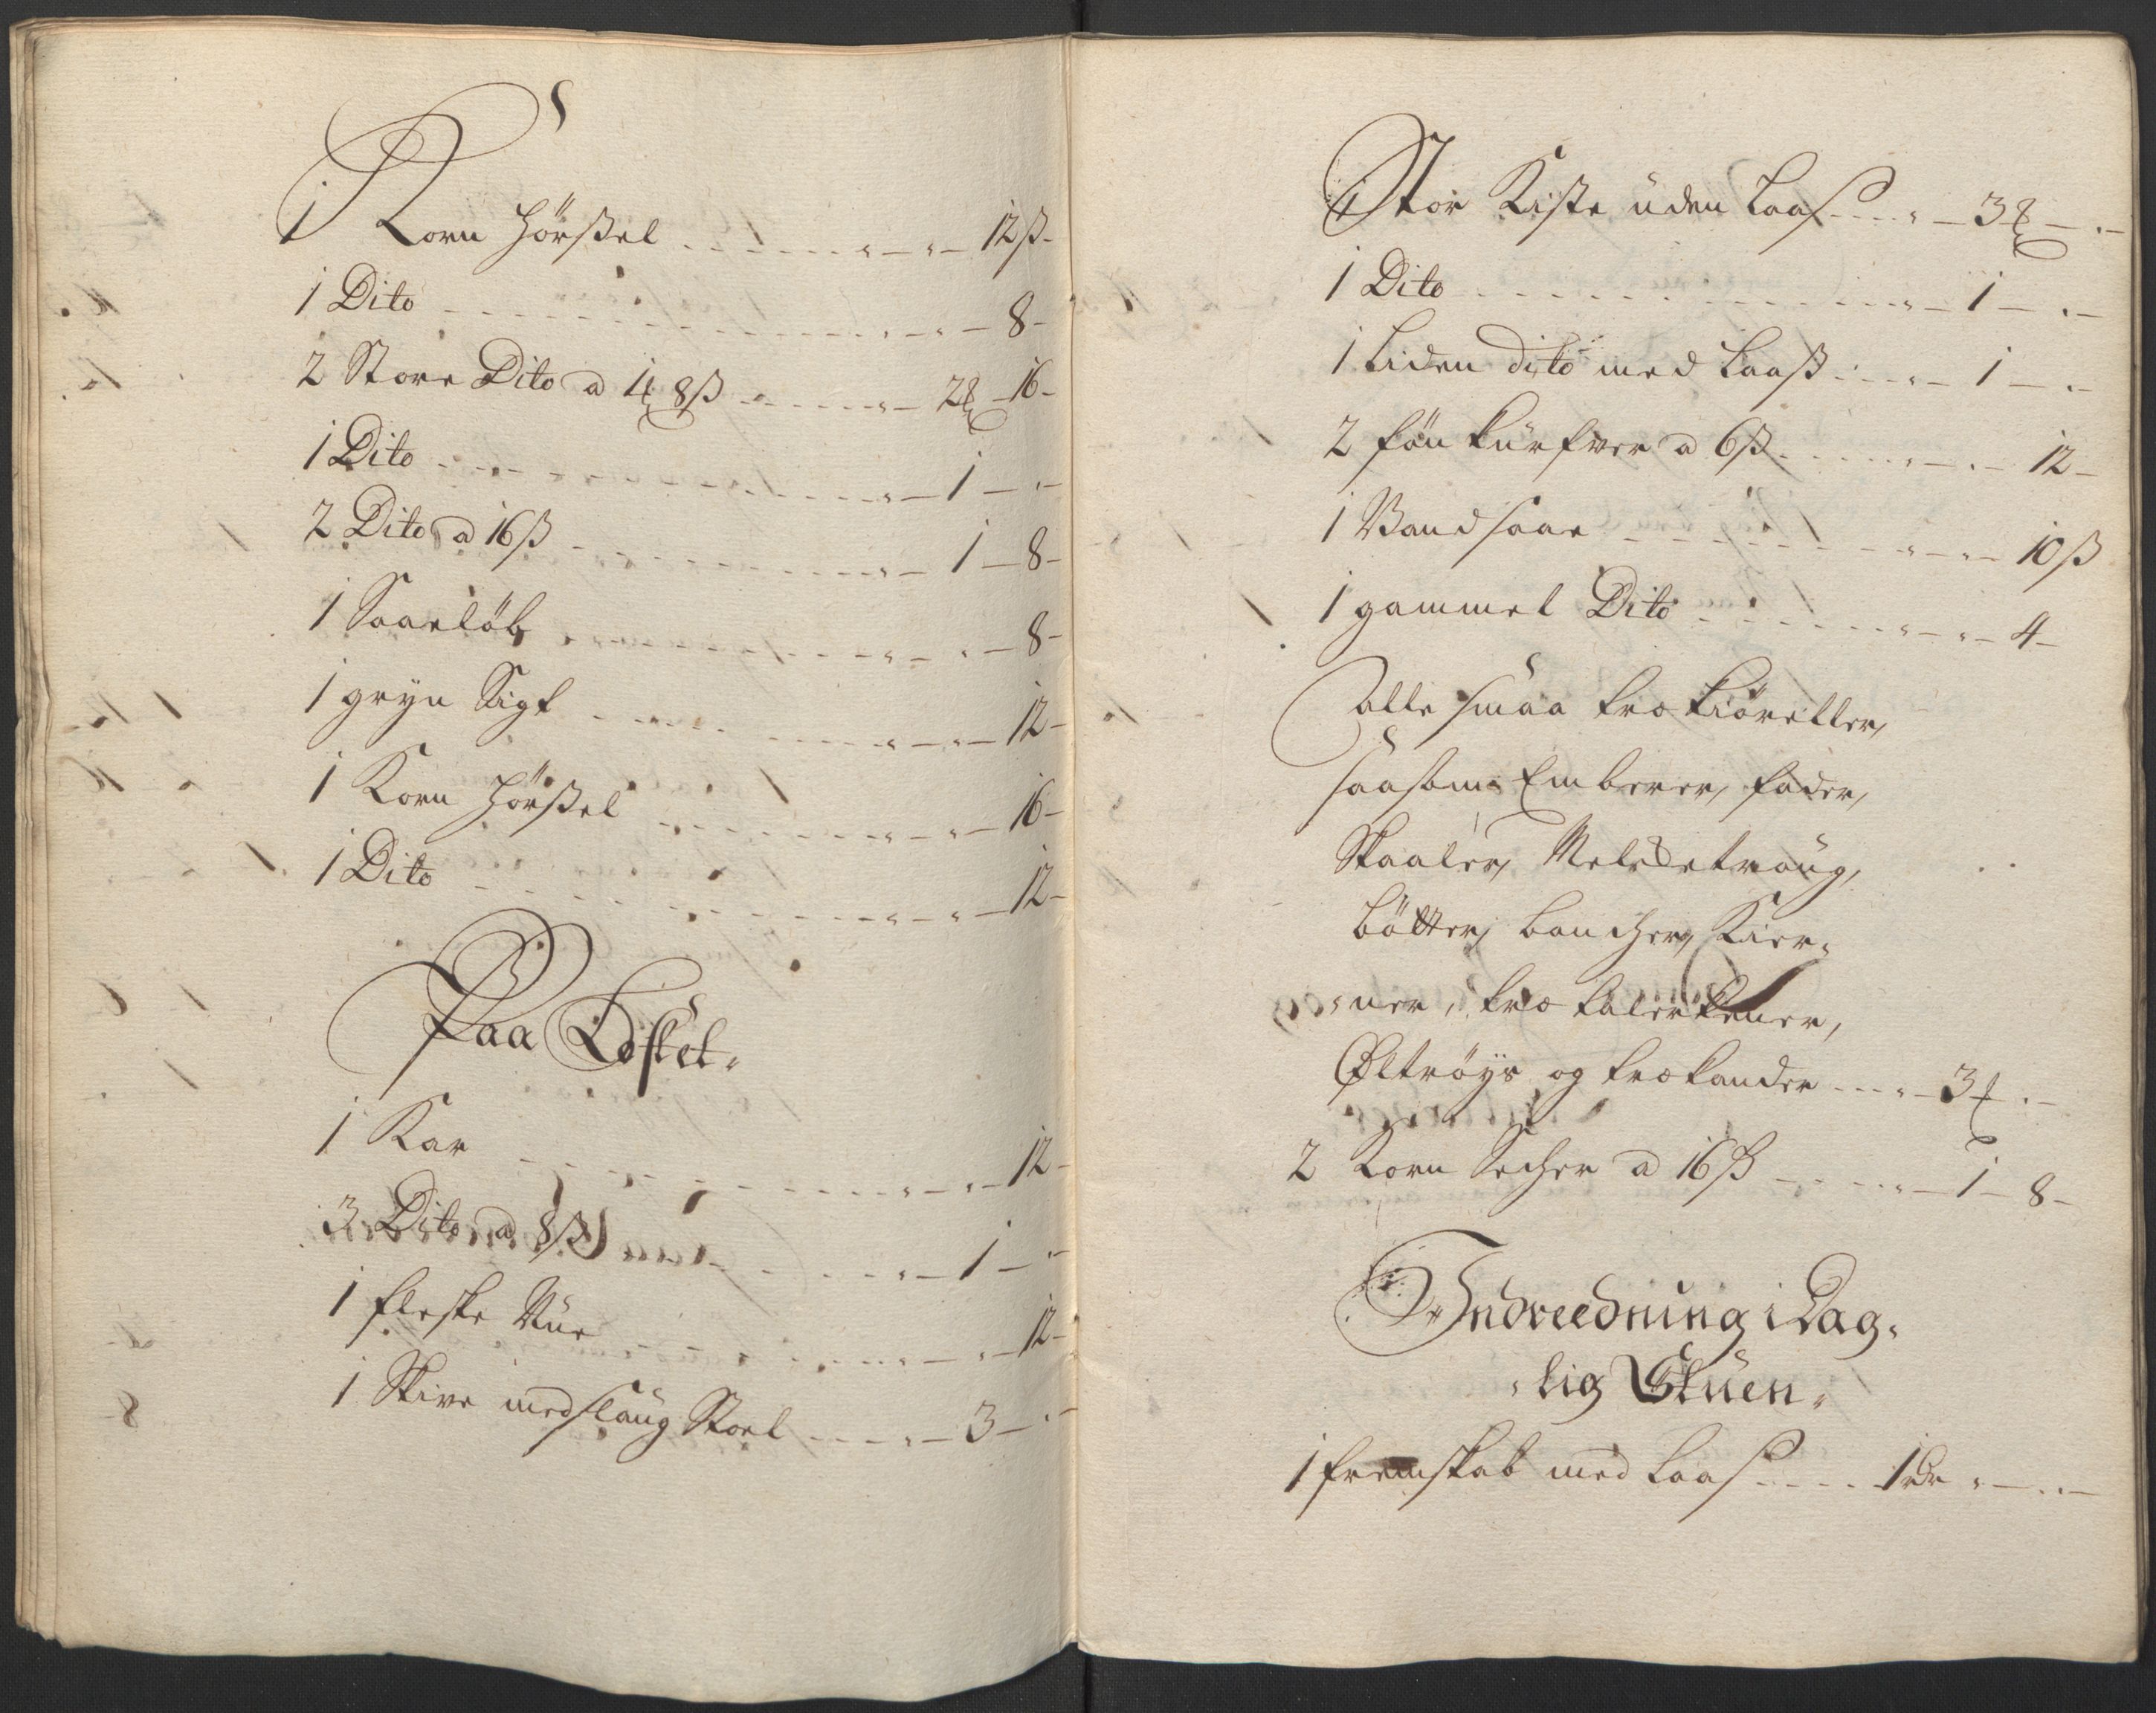 1 Korn Hørßel - - - - - 12 ß -
1 Dito - - - - - 8 -
2 Store Dito a 1 8 ß - - - - - 2 - 16 -
1 Dito - - - - - 1 - " -
2 Dito a 16 ß - - - - - 1 - 8 -
1 Saaeløb - - - - - 8 -
1 gryn Sigt - - - - - 12 -
1 Korn Hørßel - - - - - 16 -
1 Dito - - - - - 12 -
Paa Loftet.
1 Kar - - - - - 12 -
3 Dito a 8 ß - - - - - 1 - " -
1 fleske - - - - - 12 -
1 Skive med slaug Stoel - - - - - 3 - " -
1 Stor Kiste uden Laas - - - - 3 - " -
1 Dito - - - - - 1 - " -
1 Liden dito med Laaß - - - - 1 - " -
2 kurfver a 6 ß - - - - 12 -
1 Vand saae - - - - - 10 ß
1 gammel Dito - - - - - 4 -
alle smaa træ Kiøretler,
saasom Emberer, fader,
Skaaler, Melke traug,
bøtter, bancher, Kier=
=ner, træ talerkener,
Øltrøys og trækander - - - 3 " -
2 Korn Secher a 16 ß - - - - 1 - 8 -
Indreedning i Dag=
=lig Stuen.
1 fremskab med Laas - - - - 1 rdr " - " -